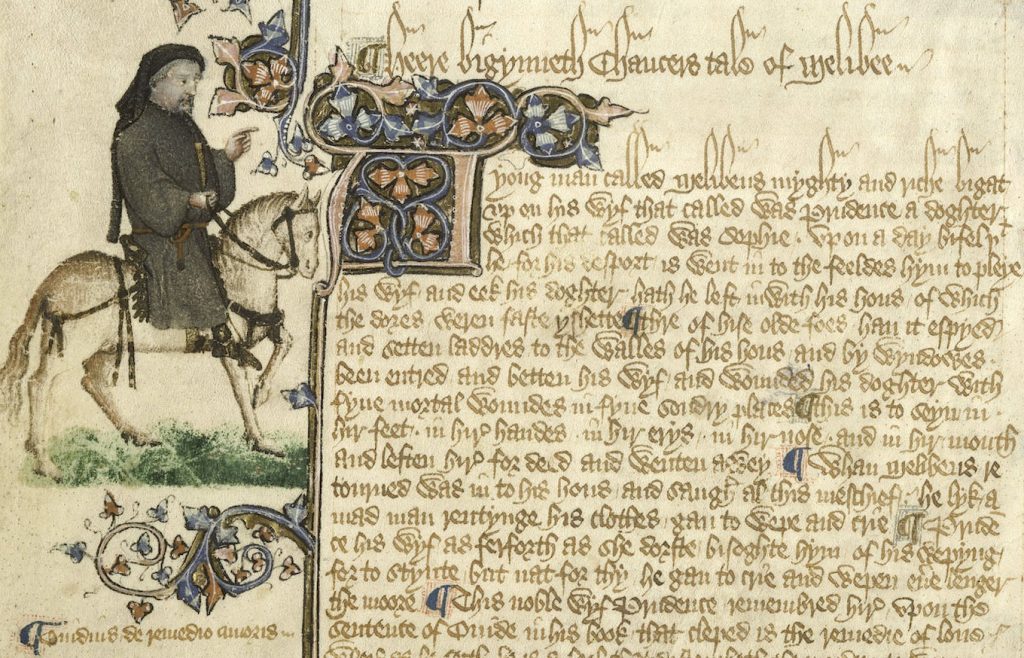 ¶ Heere bigynneth Chaucers tale of Melibee
A yong man called Melibeus myghty and riche bigat
up on his wyf that called was Prudence a doghter
which that called was Sophie . Upon a day bifel þt
he for his desport is went in to the feeldes hym to pleye
his wyf and eek his doghter hath he left in with his hous / of which
the dores weren faste yshette ¶ thre of hise olde foes / han it espyed
and setten laddres to the walles of his hous and by wyndowes
been entred / and betten his wyf / and wounded his doghter with
fyue mortal woundes in fyue sondry places ¶ this is to seyn in
hir feet . in hir handes . in hir erys . in hir nose . and in hir mouth
and leften hir for deed and wenten awey ¶ Whan Melibeus re
tourned was in to his hous / and saugh al this meschief / he lyk a
mad man rentynge his clothes / gan to wepe and crie ¶ Pruden
ce his wyf as ferforth as she dorste / bisoghte hym of his wepyng
for to stynte / but nat for thy he gan to crie and wepen euere lenger
the moore ¶ This noble wyf Prudence remembred hir upon the
sentence of Ouide in his book that cleped is the remedie of loue
¶ Ouidius de remedio amoris